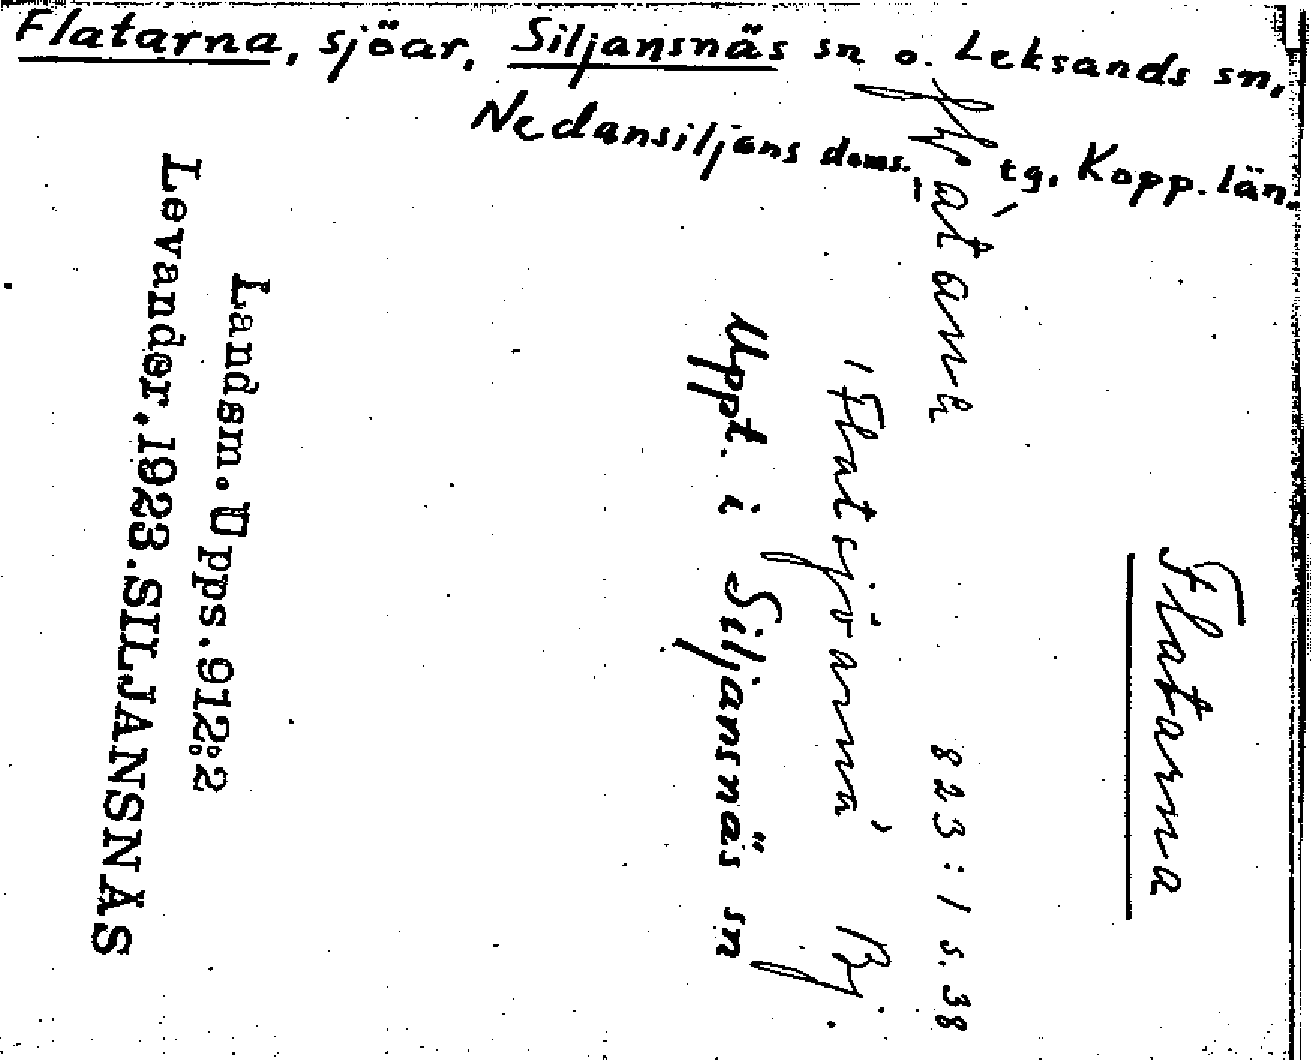 Flatarna, sjöar, Siljansnäs sn o. Leksands sn,
Nedansiljans doms. tg, Kopp. län.
Flatarna
823:1 s. 38
'Flatsjöarna' Bj.
Uppt. i Siljansnäs sn
Landsm. Upps. 912:2
Levander, 1923. SILJANSNÄS